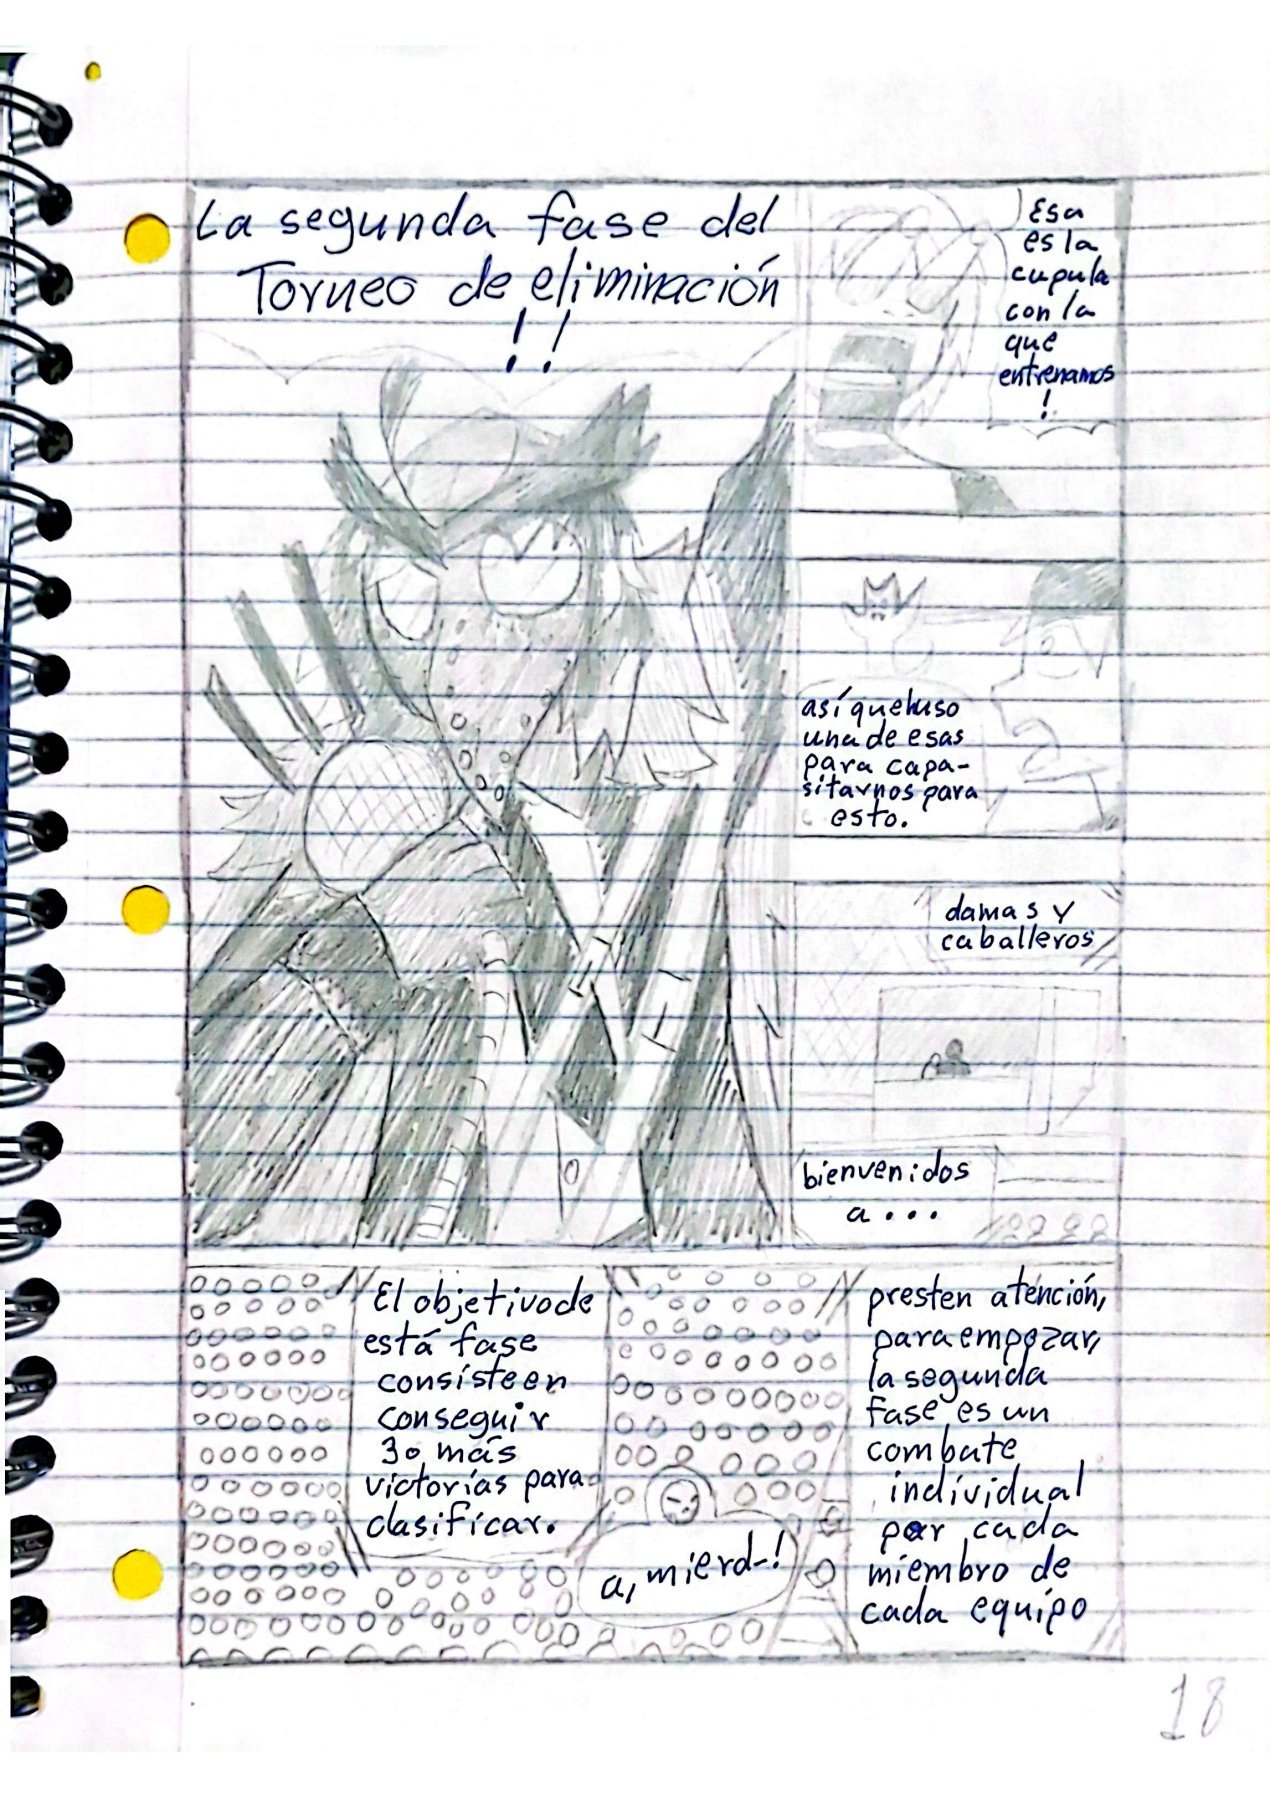 Esa
es la
cupula
con la
que
entrenamos
!
así que huso
una de esas
para capa-
sitarnos para
esto.
damas y
caballeros
bienvenidos
a...
La segunda fase del
Torneo de eliminación
!!
presten atención,
para empezar,
la segunda
fase es un
combate
individual
por cada
miembro de
cada equipo
El objetivo de
está fase
consiste en
conseguir
30 más
victorías para
clasificar.
a, mierd-!
18